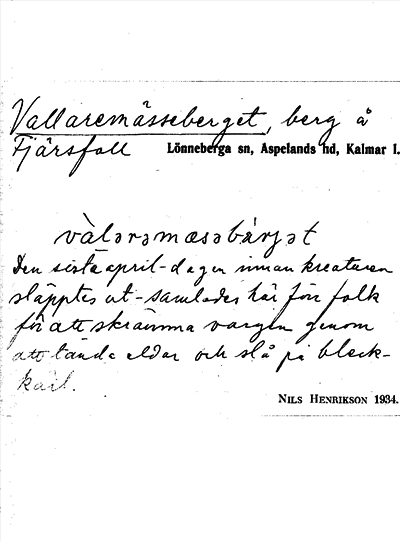 Vallaremässeberget, berg å
Fjärsfall Lönneberga sn, Aspelands hd, Kalmar l.
vàlərəmæsəbärjət
Den sista april-dagen innan kreaturen
släpptes ut - samlades här förr folk
för att skrämma vargen genom
att tända eldar och slå på bleck-
kärl.
NILS HENRIKSON 1934.